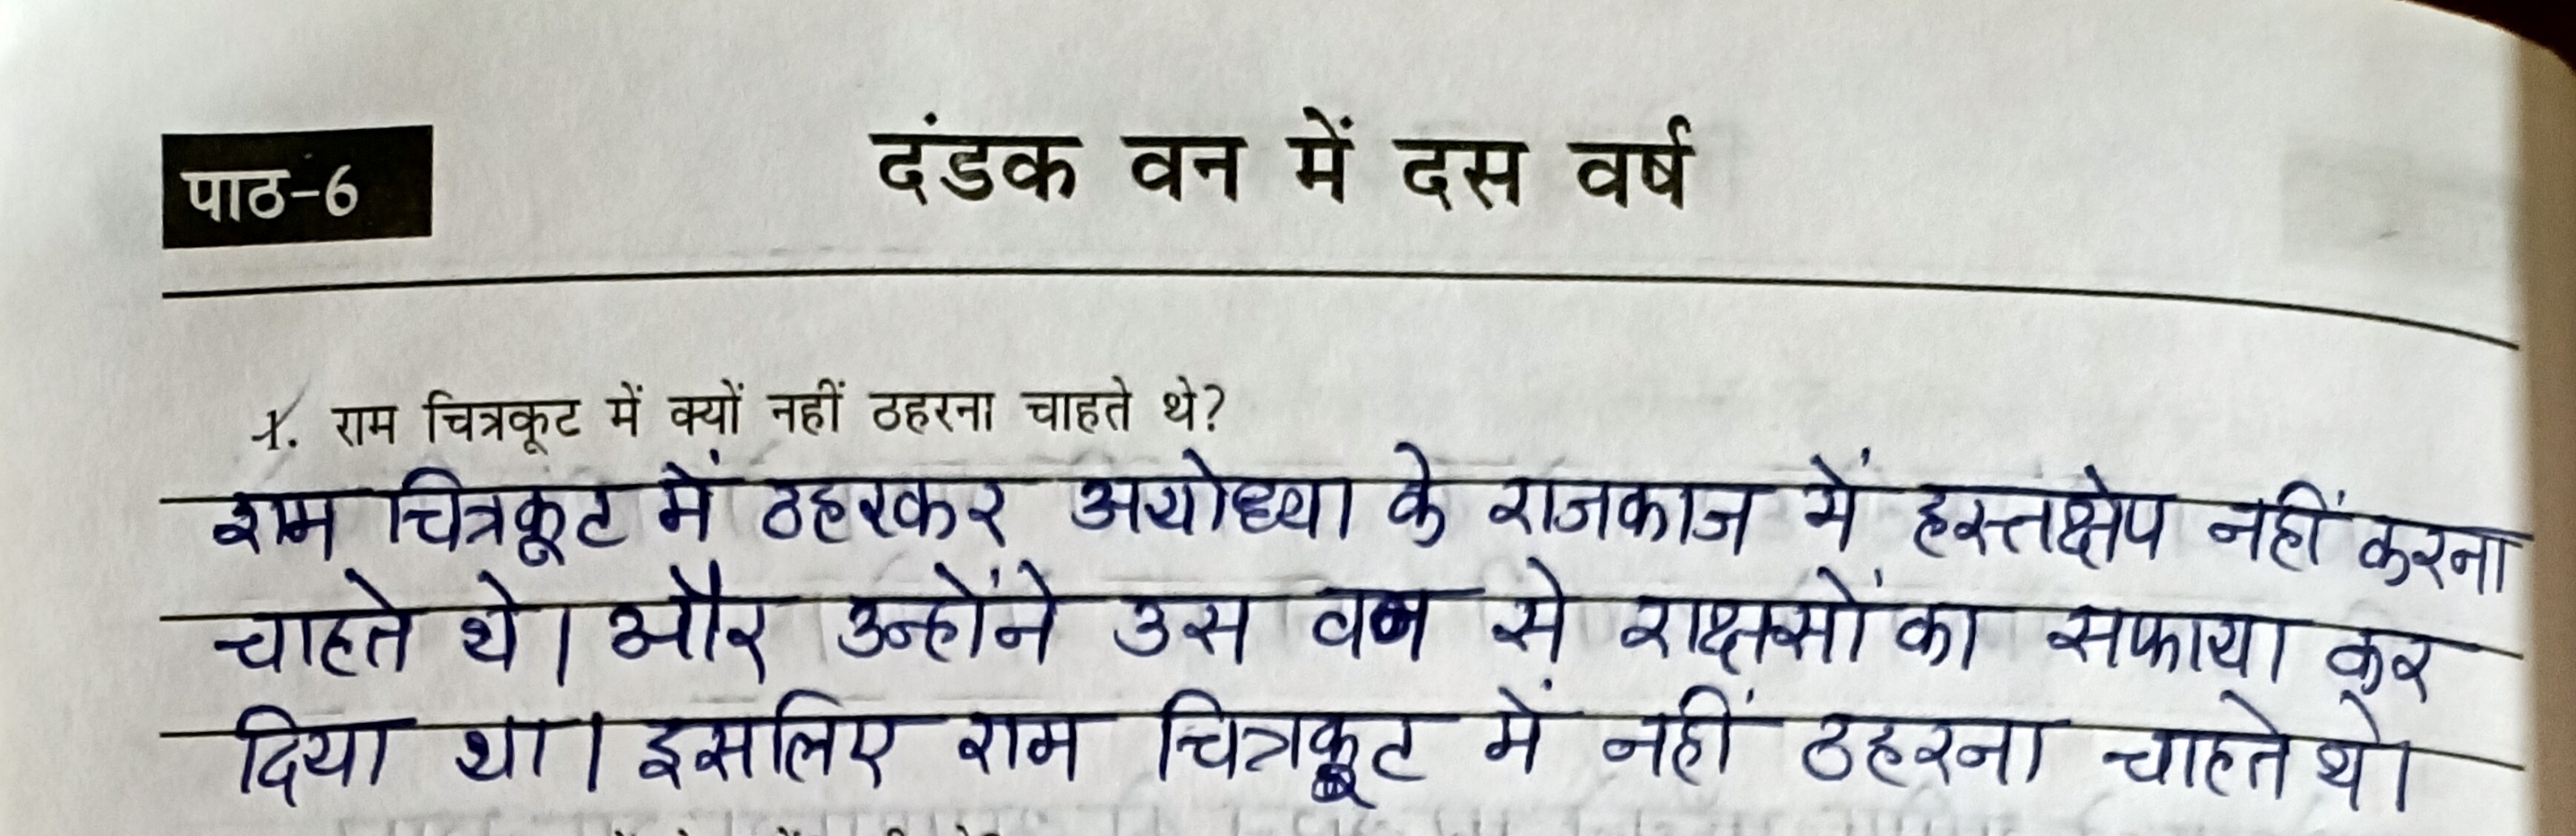 पाठ-6
दंडक वन में दस वर्ष
1. राम चित्रकूट में क्यों नहीं ठहरना चाहते थे?
राम चित्रकूट में ठहरकर अयोध्या के राजकाज में हस्तक्षेप नहीं करना
चाहते थे। और उन्होंने उस वन से राक्षसों का सफाया कर
दिया था। इसलिए राम चित्रकूट में नहीं ठहरना चाहते थे।